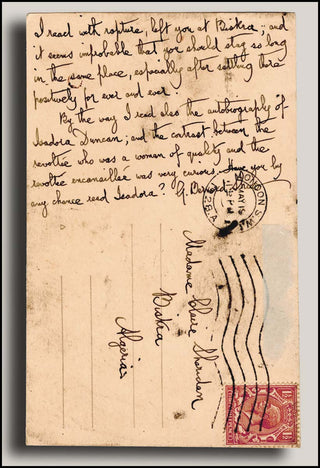 I read with rapture, left you at Biskra; and
it seems improbable that you should stay so long
in the same place, especially after settling there
positively for ever and ever.
By the way I read also the autobiography of
Isadora Duncan; and the contrast between the
revoltée who was a woman of quality and the
revoltée encanaillée was very curious. Have you by
any chance read Isadora? G. Bernard Shaw
LONDON. S.W.1
MAY 15
PM
28.A
Madame Clare Sheridan
Biskra
Algeria
1½
1½